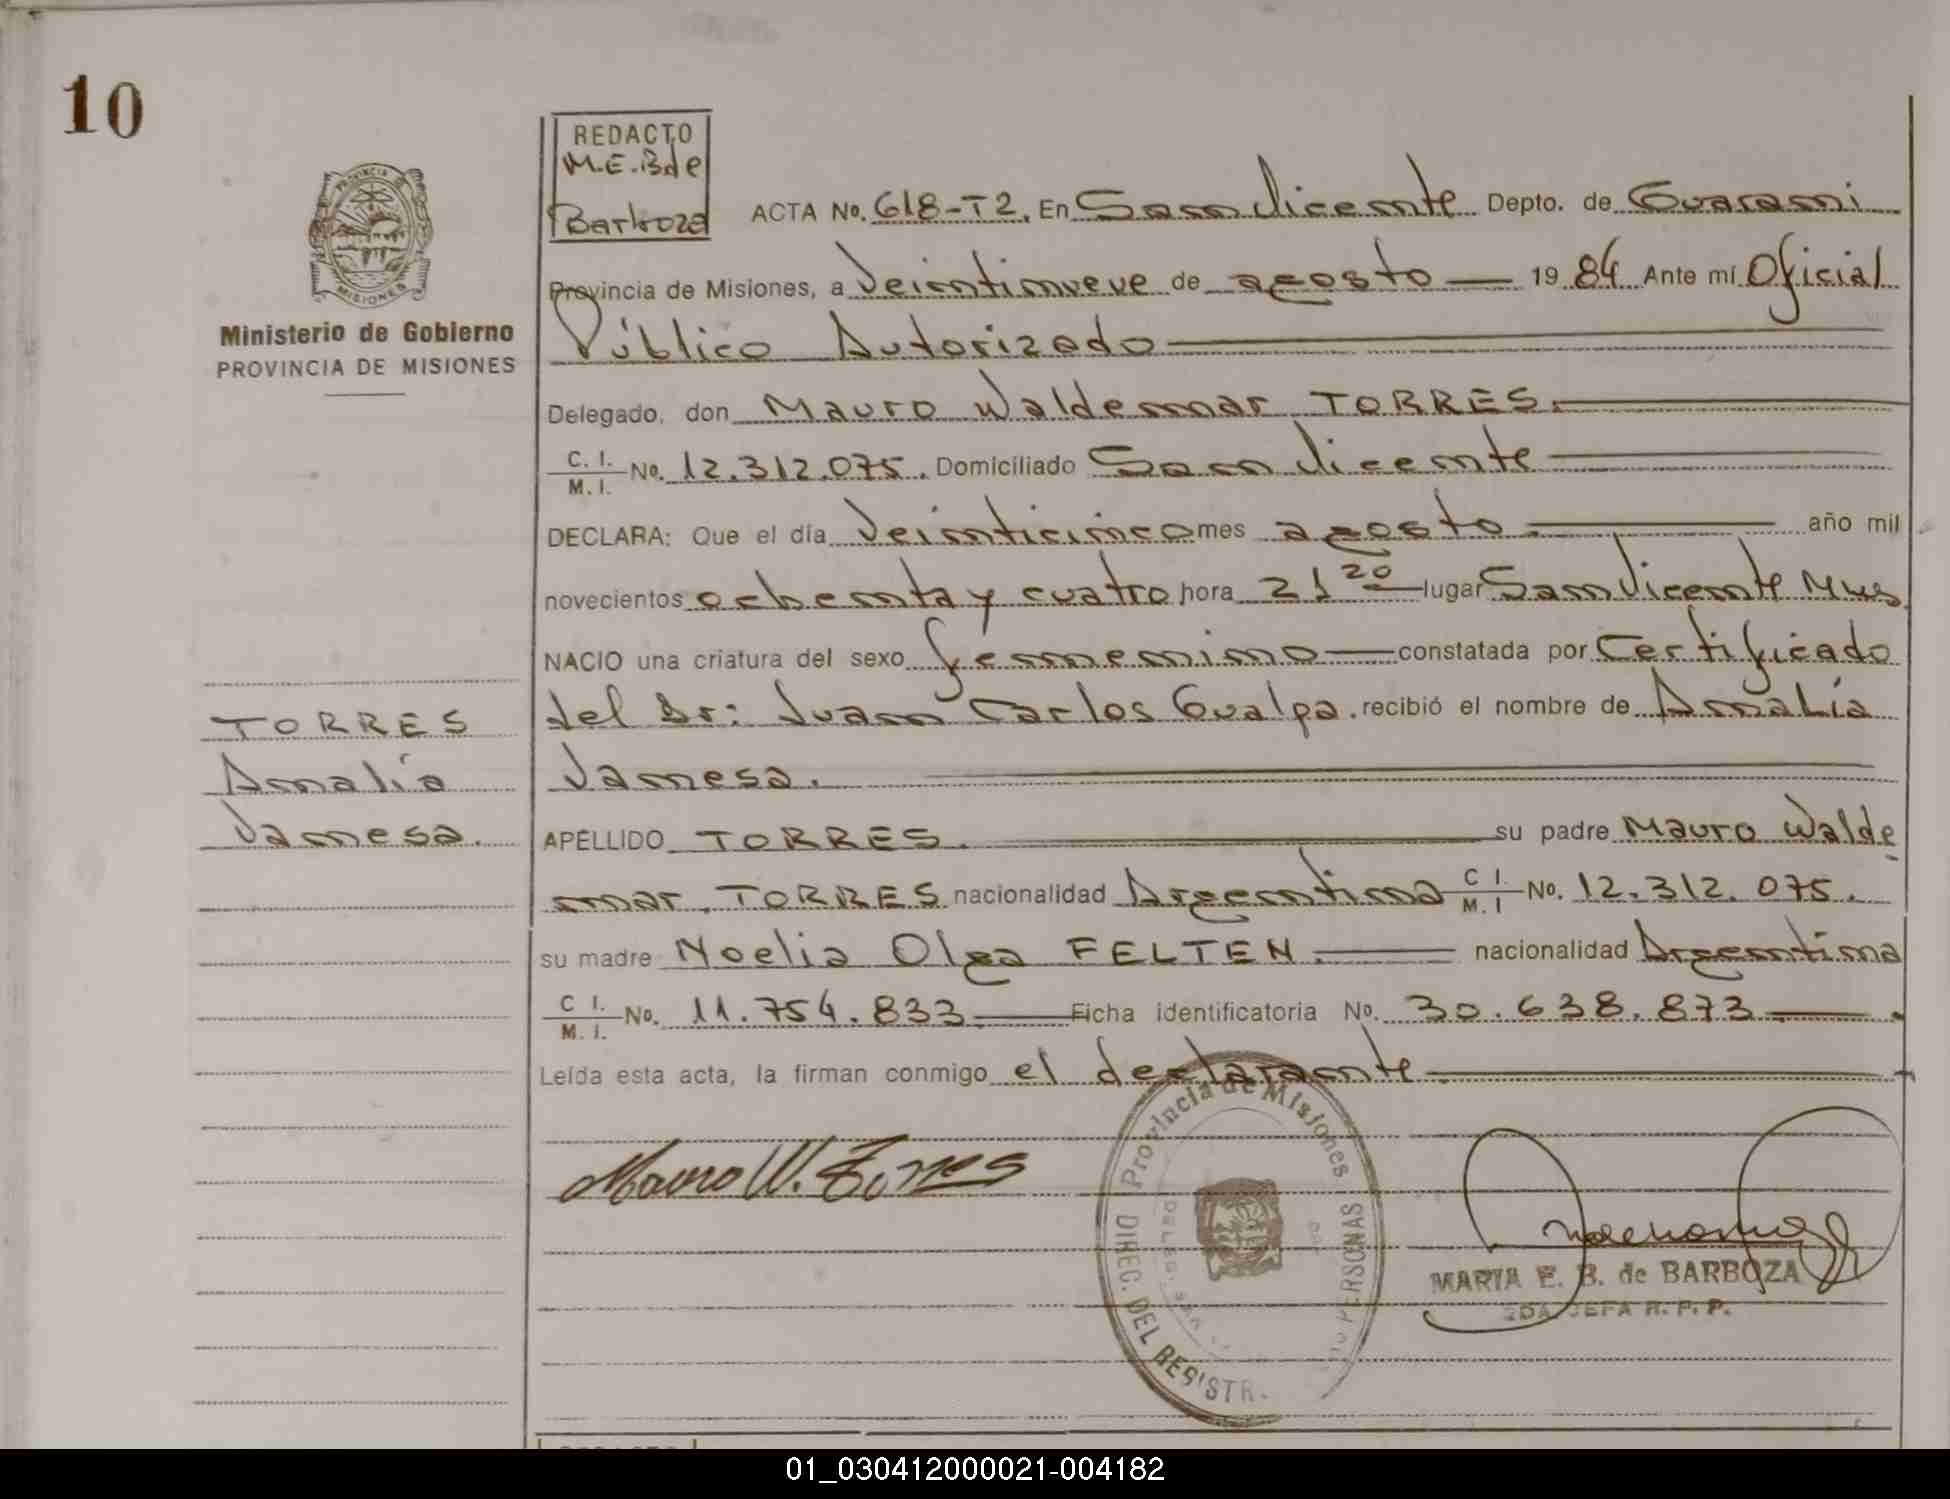 10
REDACTO
M.E.Bde
Barboza
PROVINCIA DE
MISIONES
Ministerio de Gobierno
PROVINCIA DE MISIONES
ACTA No. 618-T2. En San Vicente Depto. de Guarani
Provincia de Misiones, a Veintinueve de agosto — 1984 Ante mí Oficial
Público Autorizado
Delegado, don Mauro Waldemar TORRES.
C. I. / M. I. No. 12.312.075. Domiciliado San Vicente
DECLARA: Que el día Veinticinco mes agosto. año mil
novecientos ochenta y cuatro hora 21 20 lugar San Vicente Mnes
NACIO una criatura del sexo femenino — constatada por Certificado
del Dr: Juan Carlos Gualpa. recibió el nombre de Amalia
Vanesa.
APELLIDO TORRES. su padre Mauro Walde
mar. TORRES nacionalidad Argentina C I. / M. I No. 12.312.075.
su madre Noelia Olga FELTEN. nacionalidad Argentina
C I. / M. I. No. 11.754.833. Ficha identificatoria No. 30.638.873
Leída esta acta, la firman conmigo el declarante
TORRES
Amalia
Vanesa.
Mauro W. Torres
Provincia de Misiones
DIREC. DEL REGISTR.
PERSONAS
MARIA E. B. de BARBOZA
JEFA R. P. P.
01_030412000021-004182